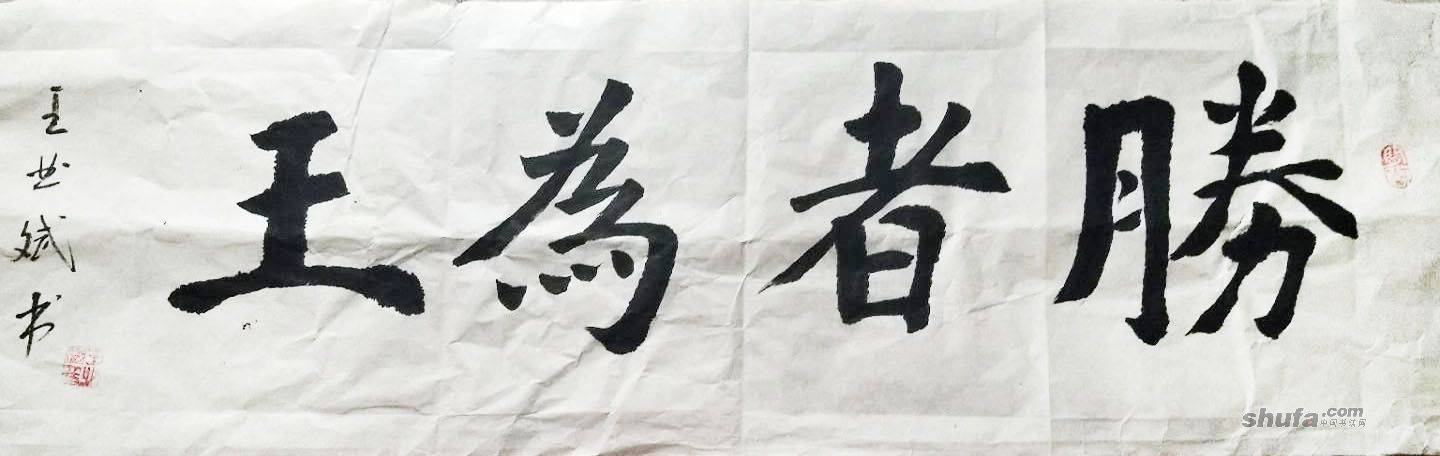 勝者為王
王业斌书
shufa.com
中国书法网